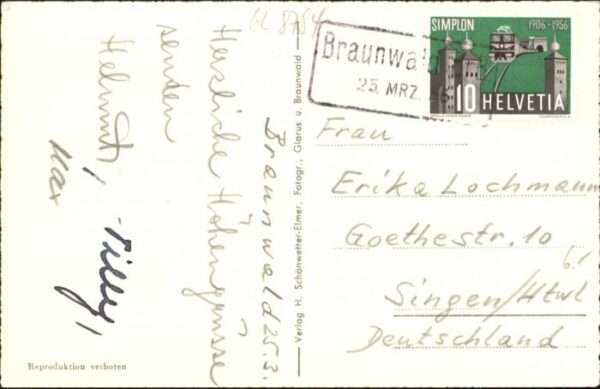 GL 8754
Braunwald 25.3.
Herzliche Höhengrüsse
senden
Helmut,
Max
Tilly,
Verlag H. Schönwetter-Elmer, Fotogr., Glarus u. Braunwald
Reproduktion verboten
Braunwald
25. MRZ.
SIMPLON 1906-1956
10 HELVETIA
Frau
Erika Lochmann
Goethestr. 10
b/
Singen/Htwl
Deutschland